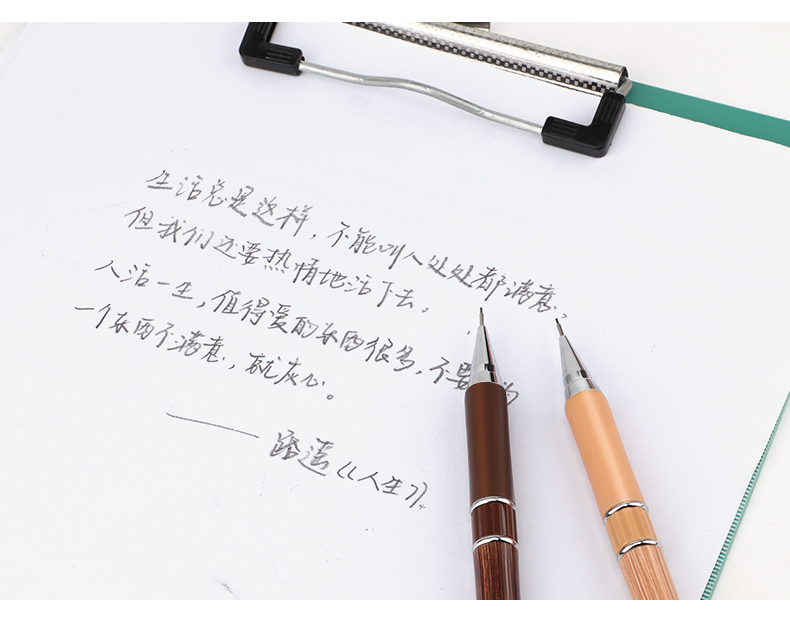 生活总是这样，不能叫人处处都满意，
但我们还要热情地活下去。
人活一生，值得爱的东西很多，不要
一个东西不满意，就灰心。
——路遥《人生》